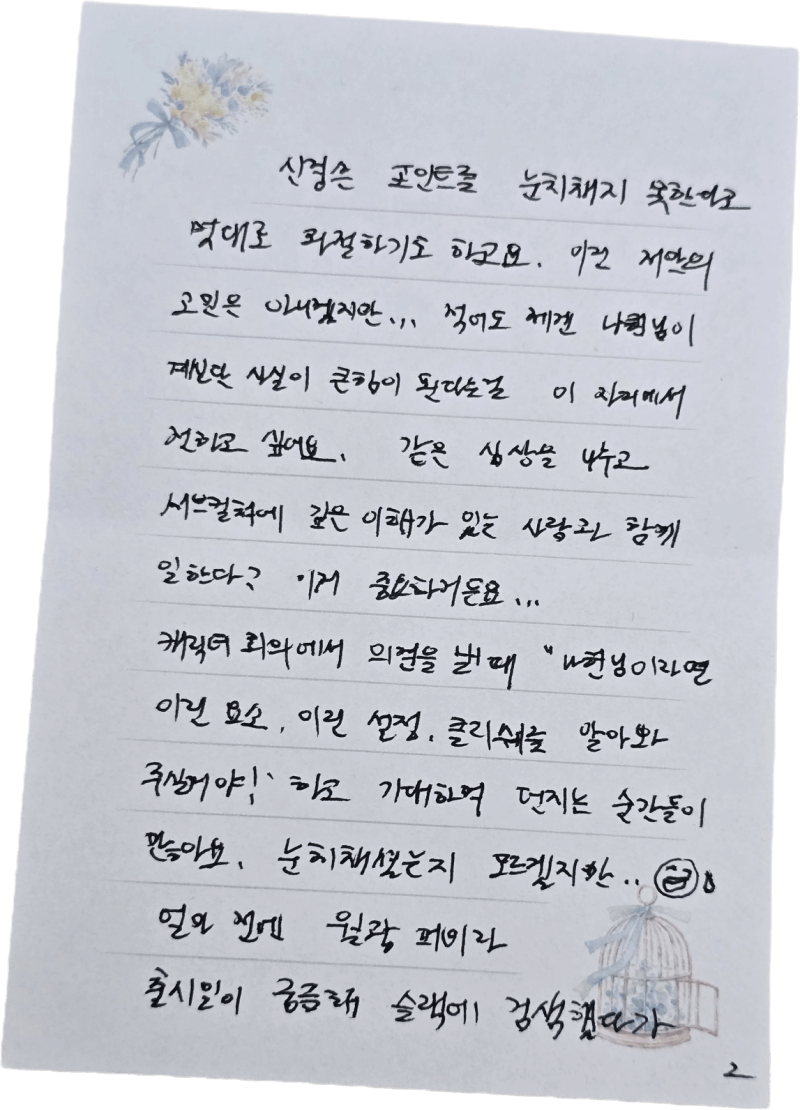 신경쓴 포인트를 눈치채지 못한다고
멋대로 좌절하기도 하고요. 이런 저만의
고민은 아니겠지만... 적어도 제겐 나현님이
계신단 사실이 큰힘이 된다는걸 이 자리에서
전하고 싶어요. 같은 심상을 나누고
서브컬쳐에 깊은 이해가 있는 사람과 함께
일한다? 이거 중요하거든요...
캐릭터 회의에서 의견을 낼 때 "나현님이라면
이런 요소, 이런 설정, 클리쉐를 알아봐
주실거야!" 하고 기대하며 던지는 순간들이
많아요. 눈치채셨는지 모르겠지만..
얼마 전엔 월광
출시일이 궁금해 슬랙에 검색했다가
2